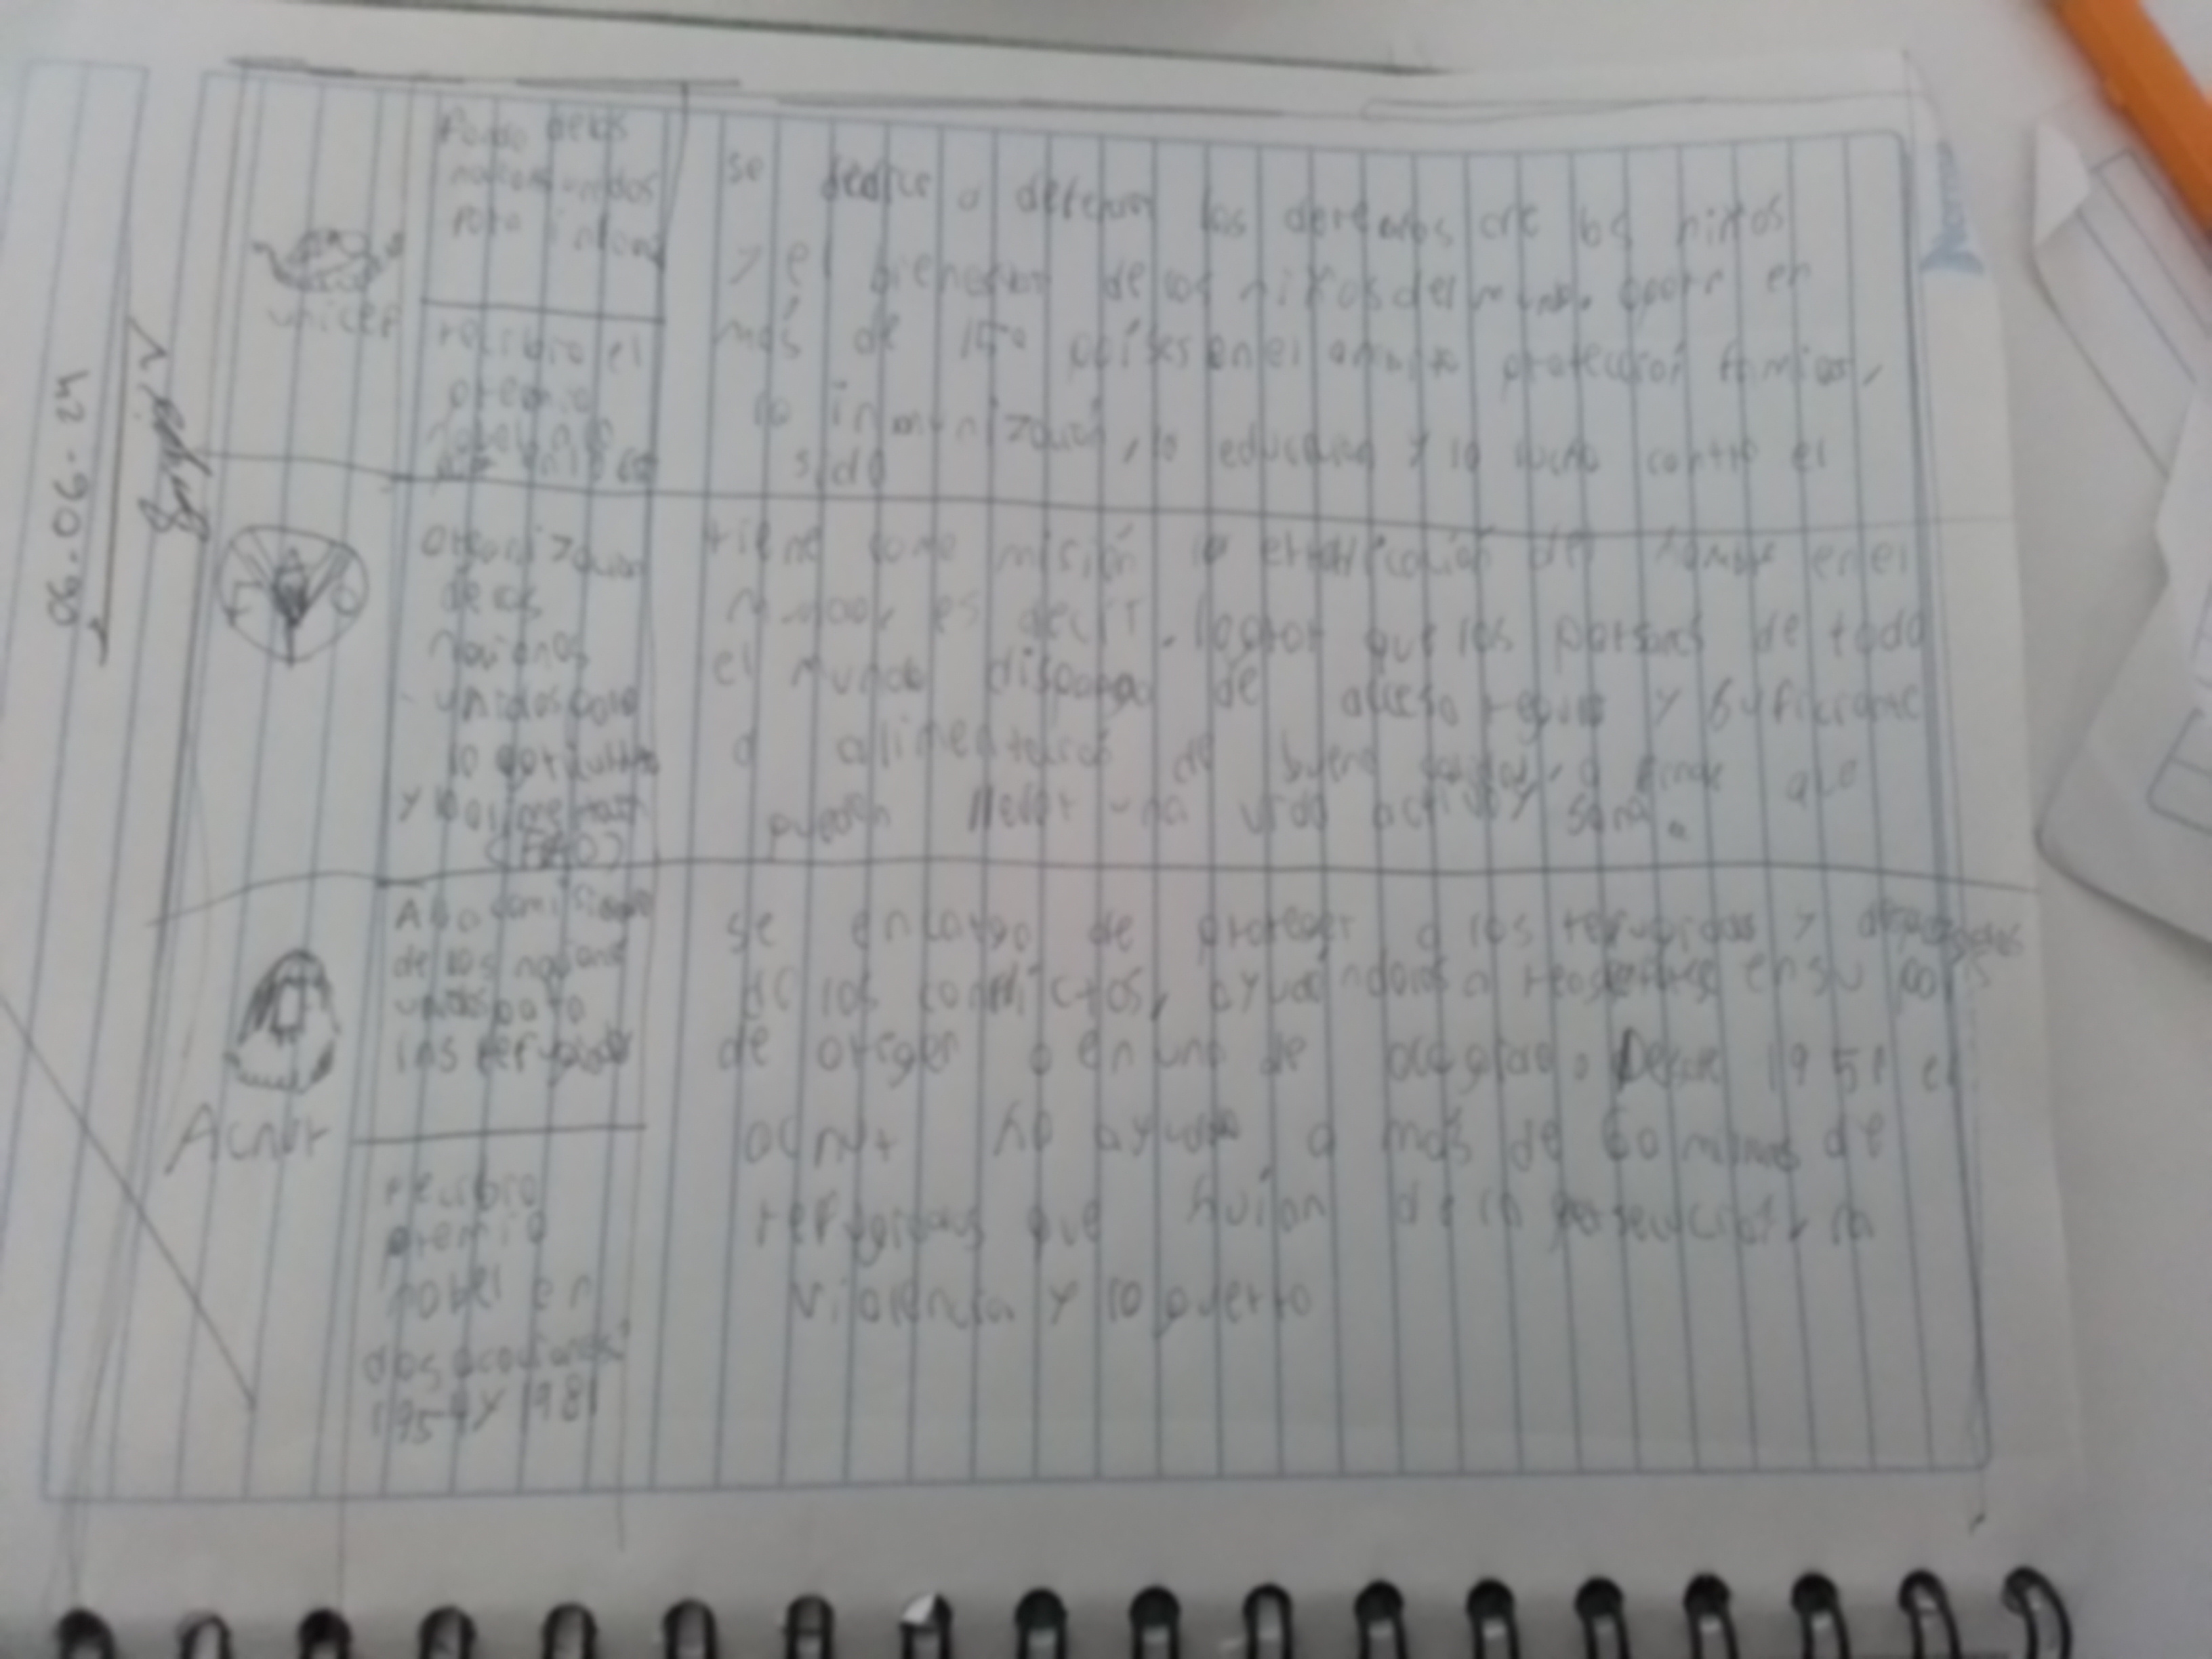 unicef
Fondo de las
naciones unidas
para infancia
recibio el
premio
se dedica a defender los derechos de los niños
y el bienestar de los niños del mundo. opera en
más de 150 países en el ambito protección familiar,
la inmunización, la educación y la lucha contra el
sida
organización
de las
naciones
unidas para
la agricultura
y la
(FAO)
tiene como misión la del hambre en el
mundo, es decir, lograr que las personas de todo
el mundo disponga de acceso regular y suficiente
a de buena calidad, a que
puedan llevar una vida activa y sana.
Acnur
de las
unidas para
los refugiados
recibio
premio
nobel en
dos
1954 y 1981
se encarga de proteger a los refugiados y
de los conflictos, ayudándolos a en su país
de origen o en uno de acogida. Desde 1951 el
acnur ha ayudado a más de 60 de
refugiados que huían de la persecución, la
violencia y la guerra
06-06-24